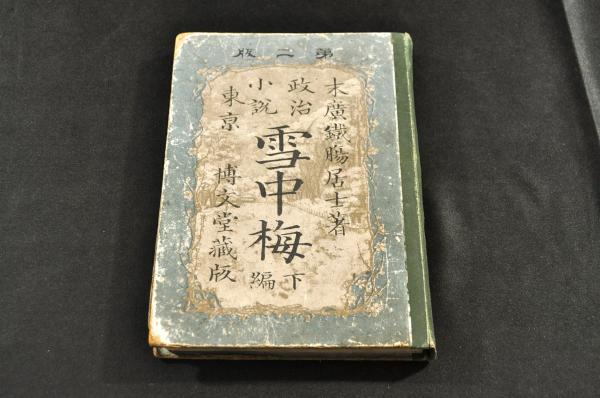 第二版
末廣鐵腸居士著
政治小說
雪中梅
下編
東京
博文堂藏版